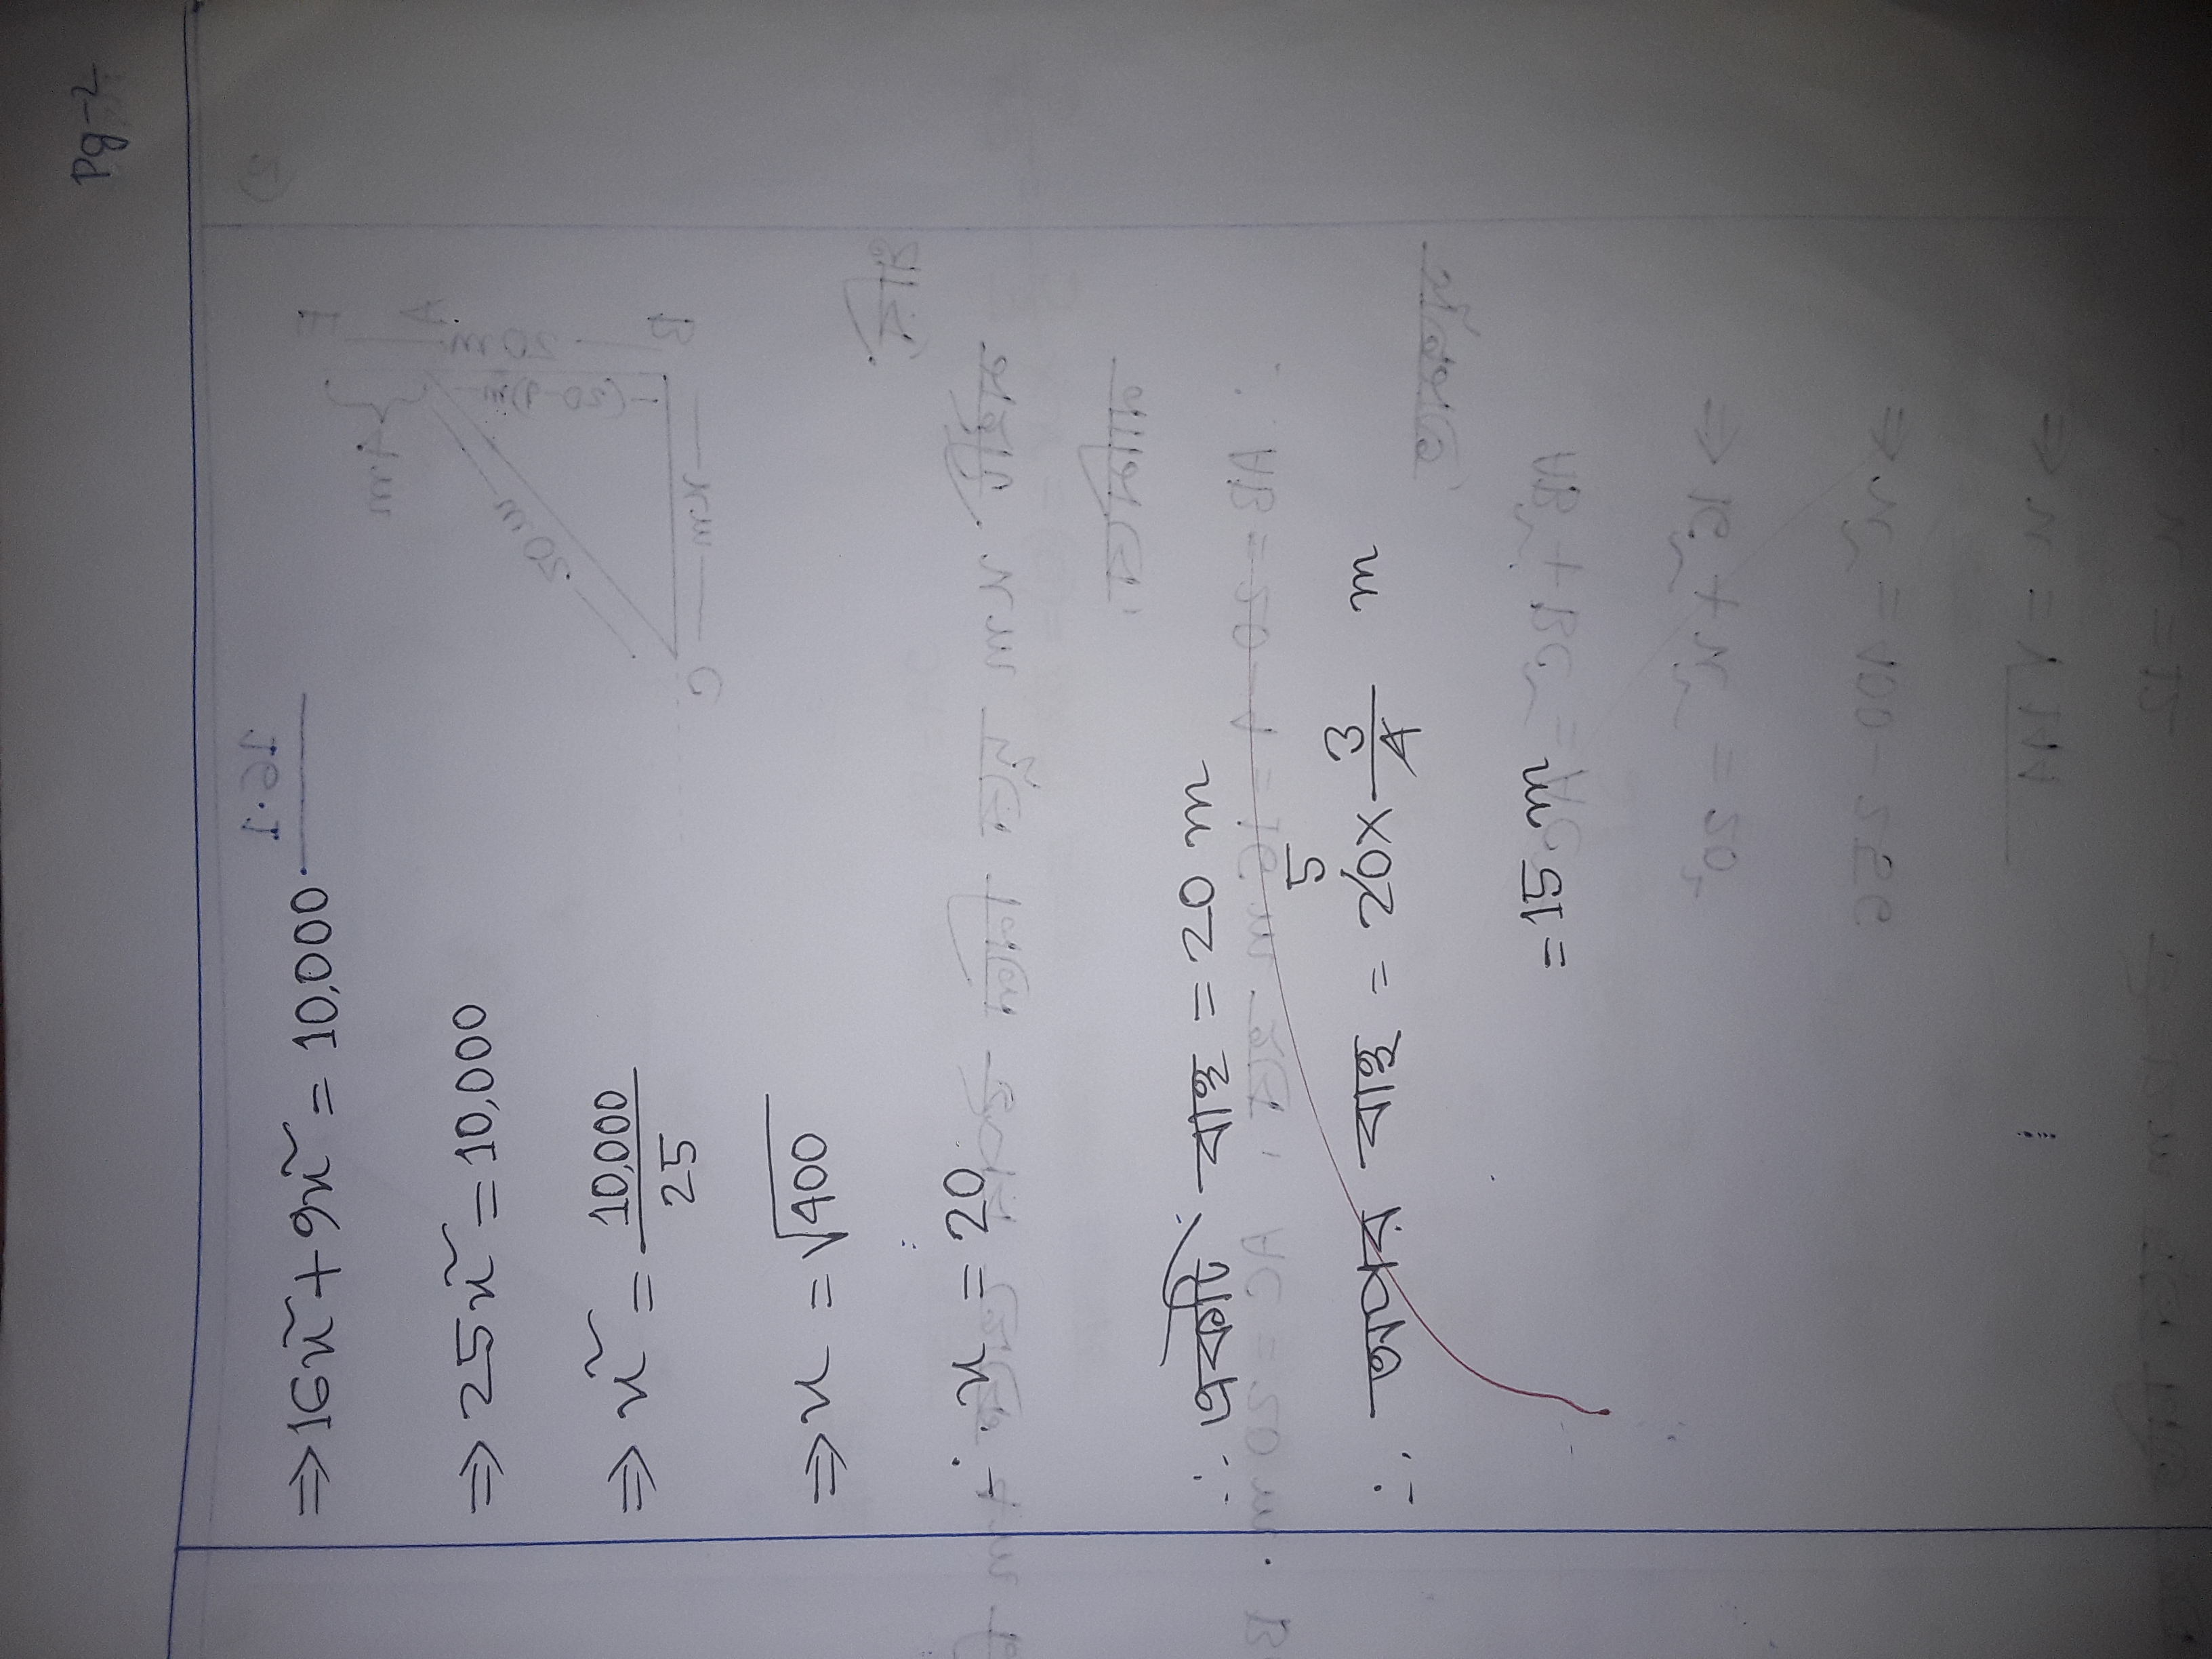 Pg-2
⇒ 16x² + 9x² = 10,000
⇒ 25x² = 10,000
⇒ x² = 10,000/25
⇒ x = √400
∴ x = 20
∴ একটি বাহু = 20 m
5
∴ অপর বাহু = 20 × 3/4 m
= 15 m